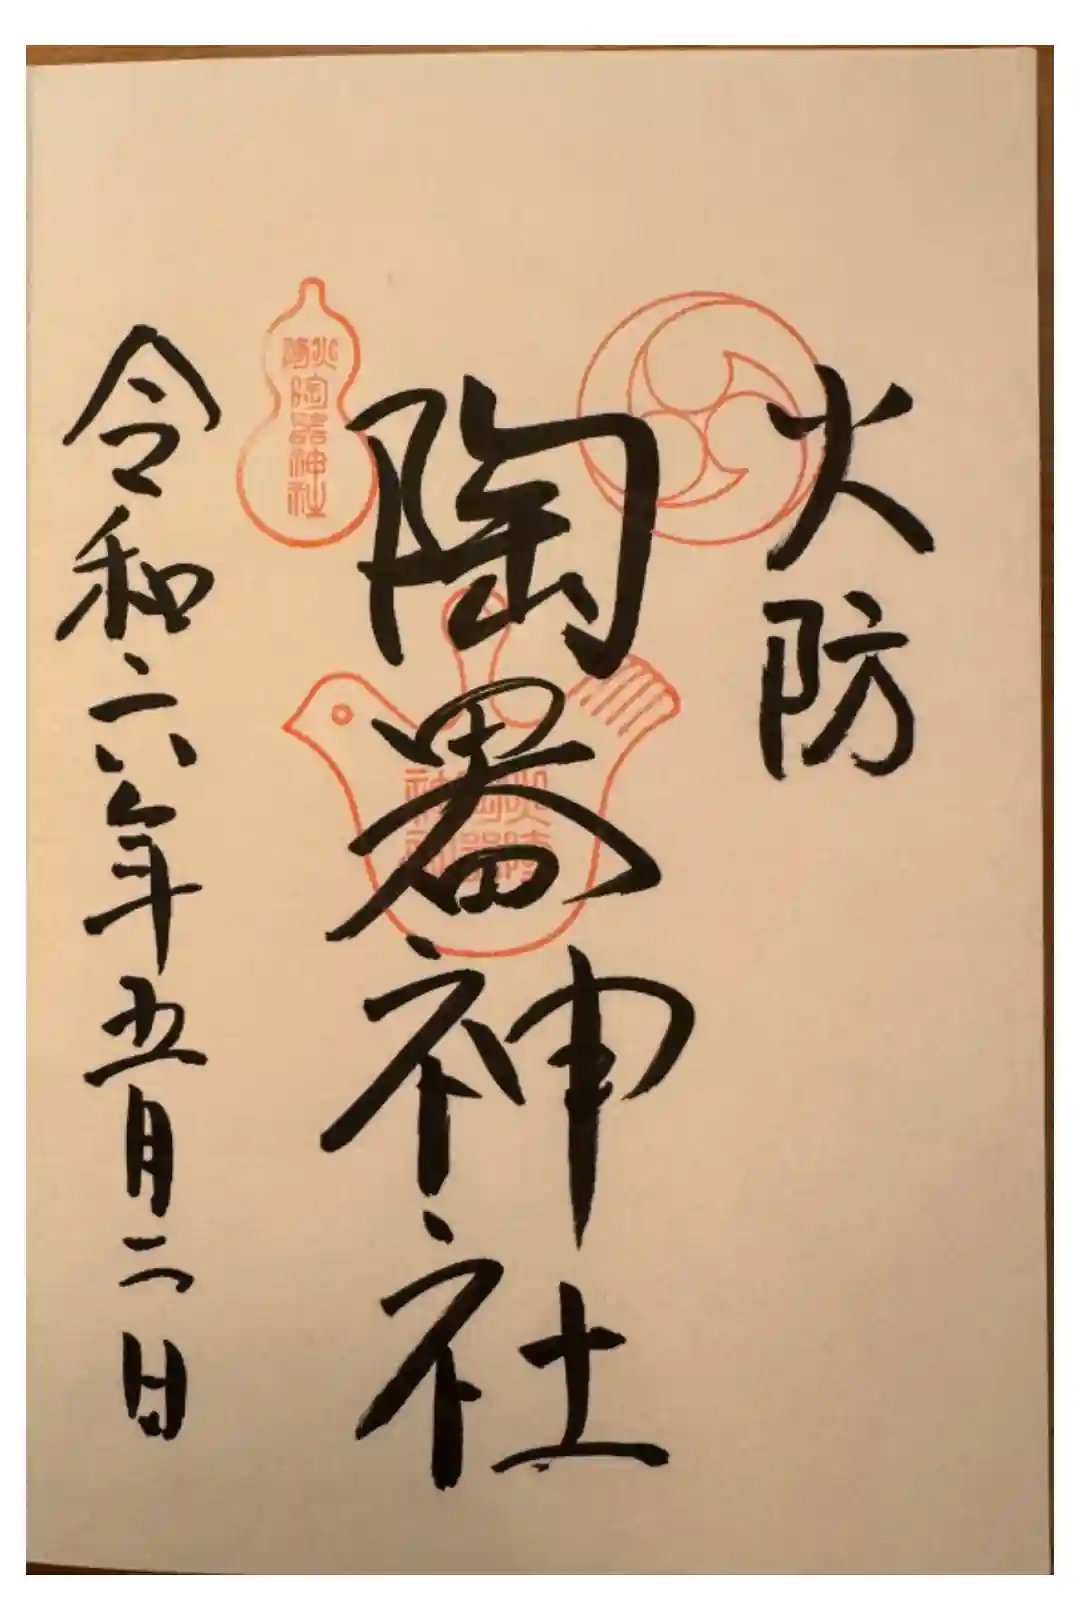 火防
陶器神社
令和六年五月二日
火防
陶器神社
火防
陶器
神社